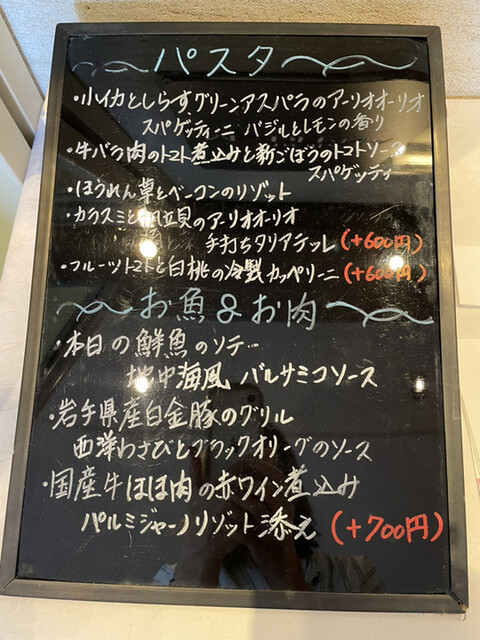 パスタ
・小イカとしらすグリーンアスパラのアーリオオーリオ
スパゲッティーニ バジルとレモンの香り
・牛バラ肉のトマト煮込みと新ごぼうのトマトソース
スパゲッティ
・ほうれん草とベーコンのリゾット
・カラスミと帆立貝のアーリオオーリオ
手打ちタリアテッレ (+600円)
・フルーツトマトと白桃の冷製カッペリーニ (+600円)
お魚&お肉
・本日の鮮魚のソテー
地中海風 バルサミコソース
・岩手県産白金豚のグリル
西洋わさびとブラックオリーブのソース
・国産牛ほほ肉の赤ワイン煮込み
パルミジャーノリゾット添え (+700円)